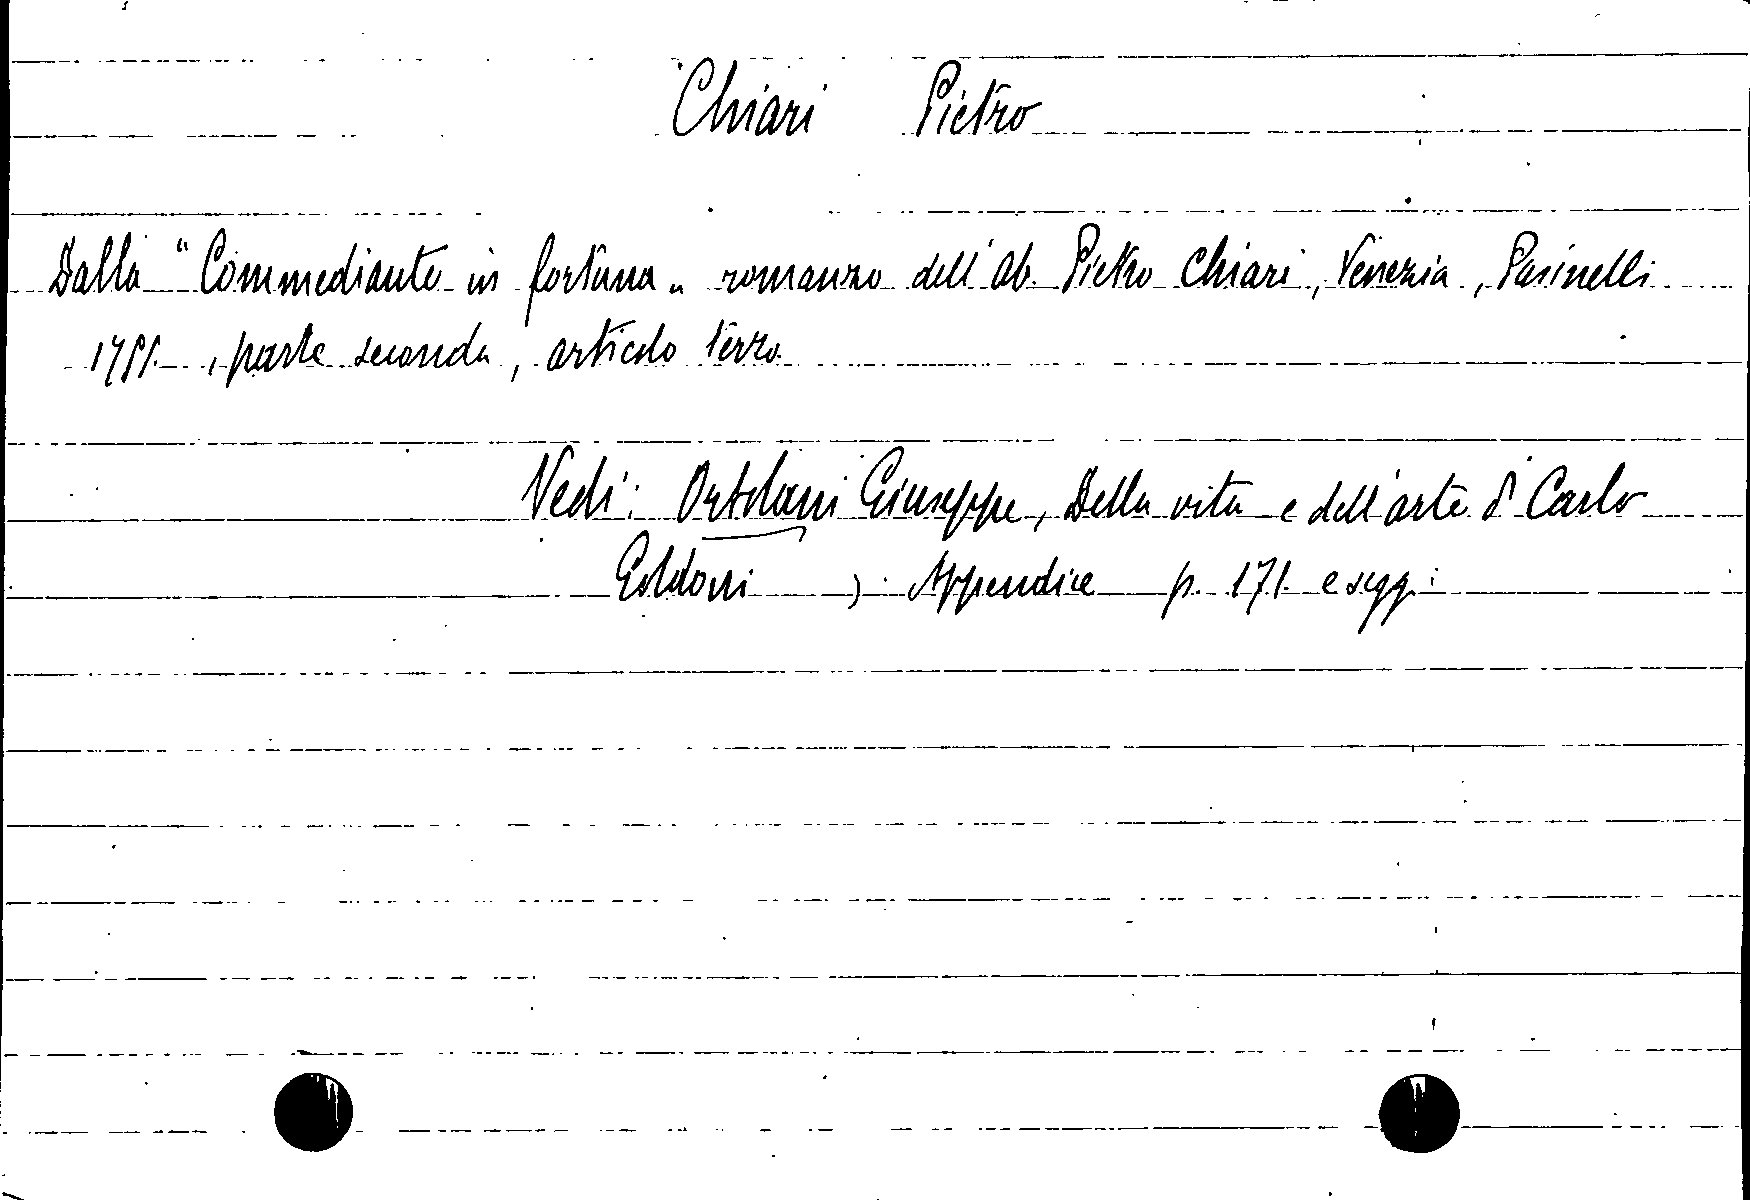 Chiari Pietro
Dalla "Commediante in fortuna" romanzo dell'ab. Pietro Chiari, Venezia, Pasinelli
1755, parte seconda, articolo terzo.
Vedi: Ortolani Giuseppe, Della vita e dell'arte di Carlo
Goldoni, Appendice p. 171 e segg: